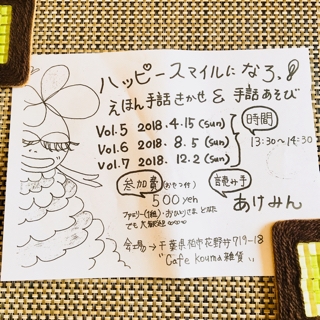 ハッピースマイルになろ!
えほん手話きかせ & 手話あそび
Vol.5 2018.4.15(sun)
Vol.6 2018.8.5(sun)
Vol.7 2018.12.2(sun)
時間
13:30~14:30
参加費(おやつ付)
500yen
ファミリー(1組)・おひとりさま
でも大歓迎
読み手
あけみん
会場→千葉県柏市花野井719-18
"Cafe kouma雑貨"